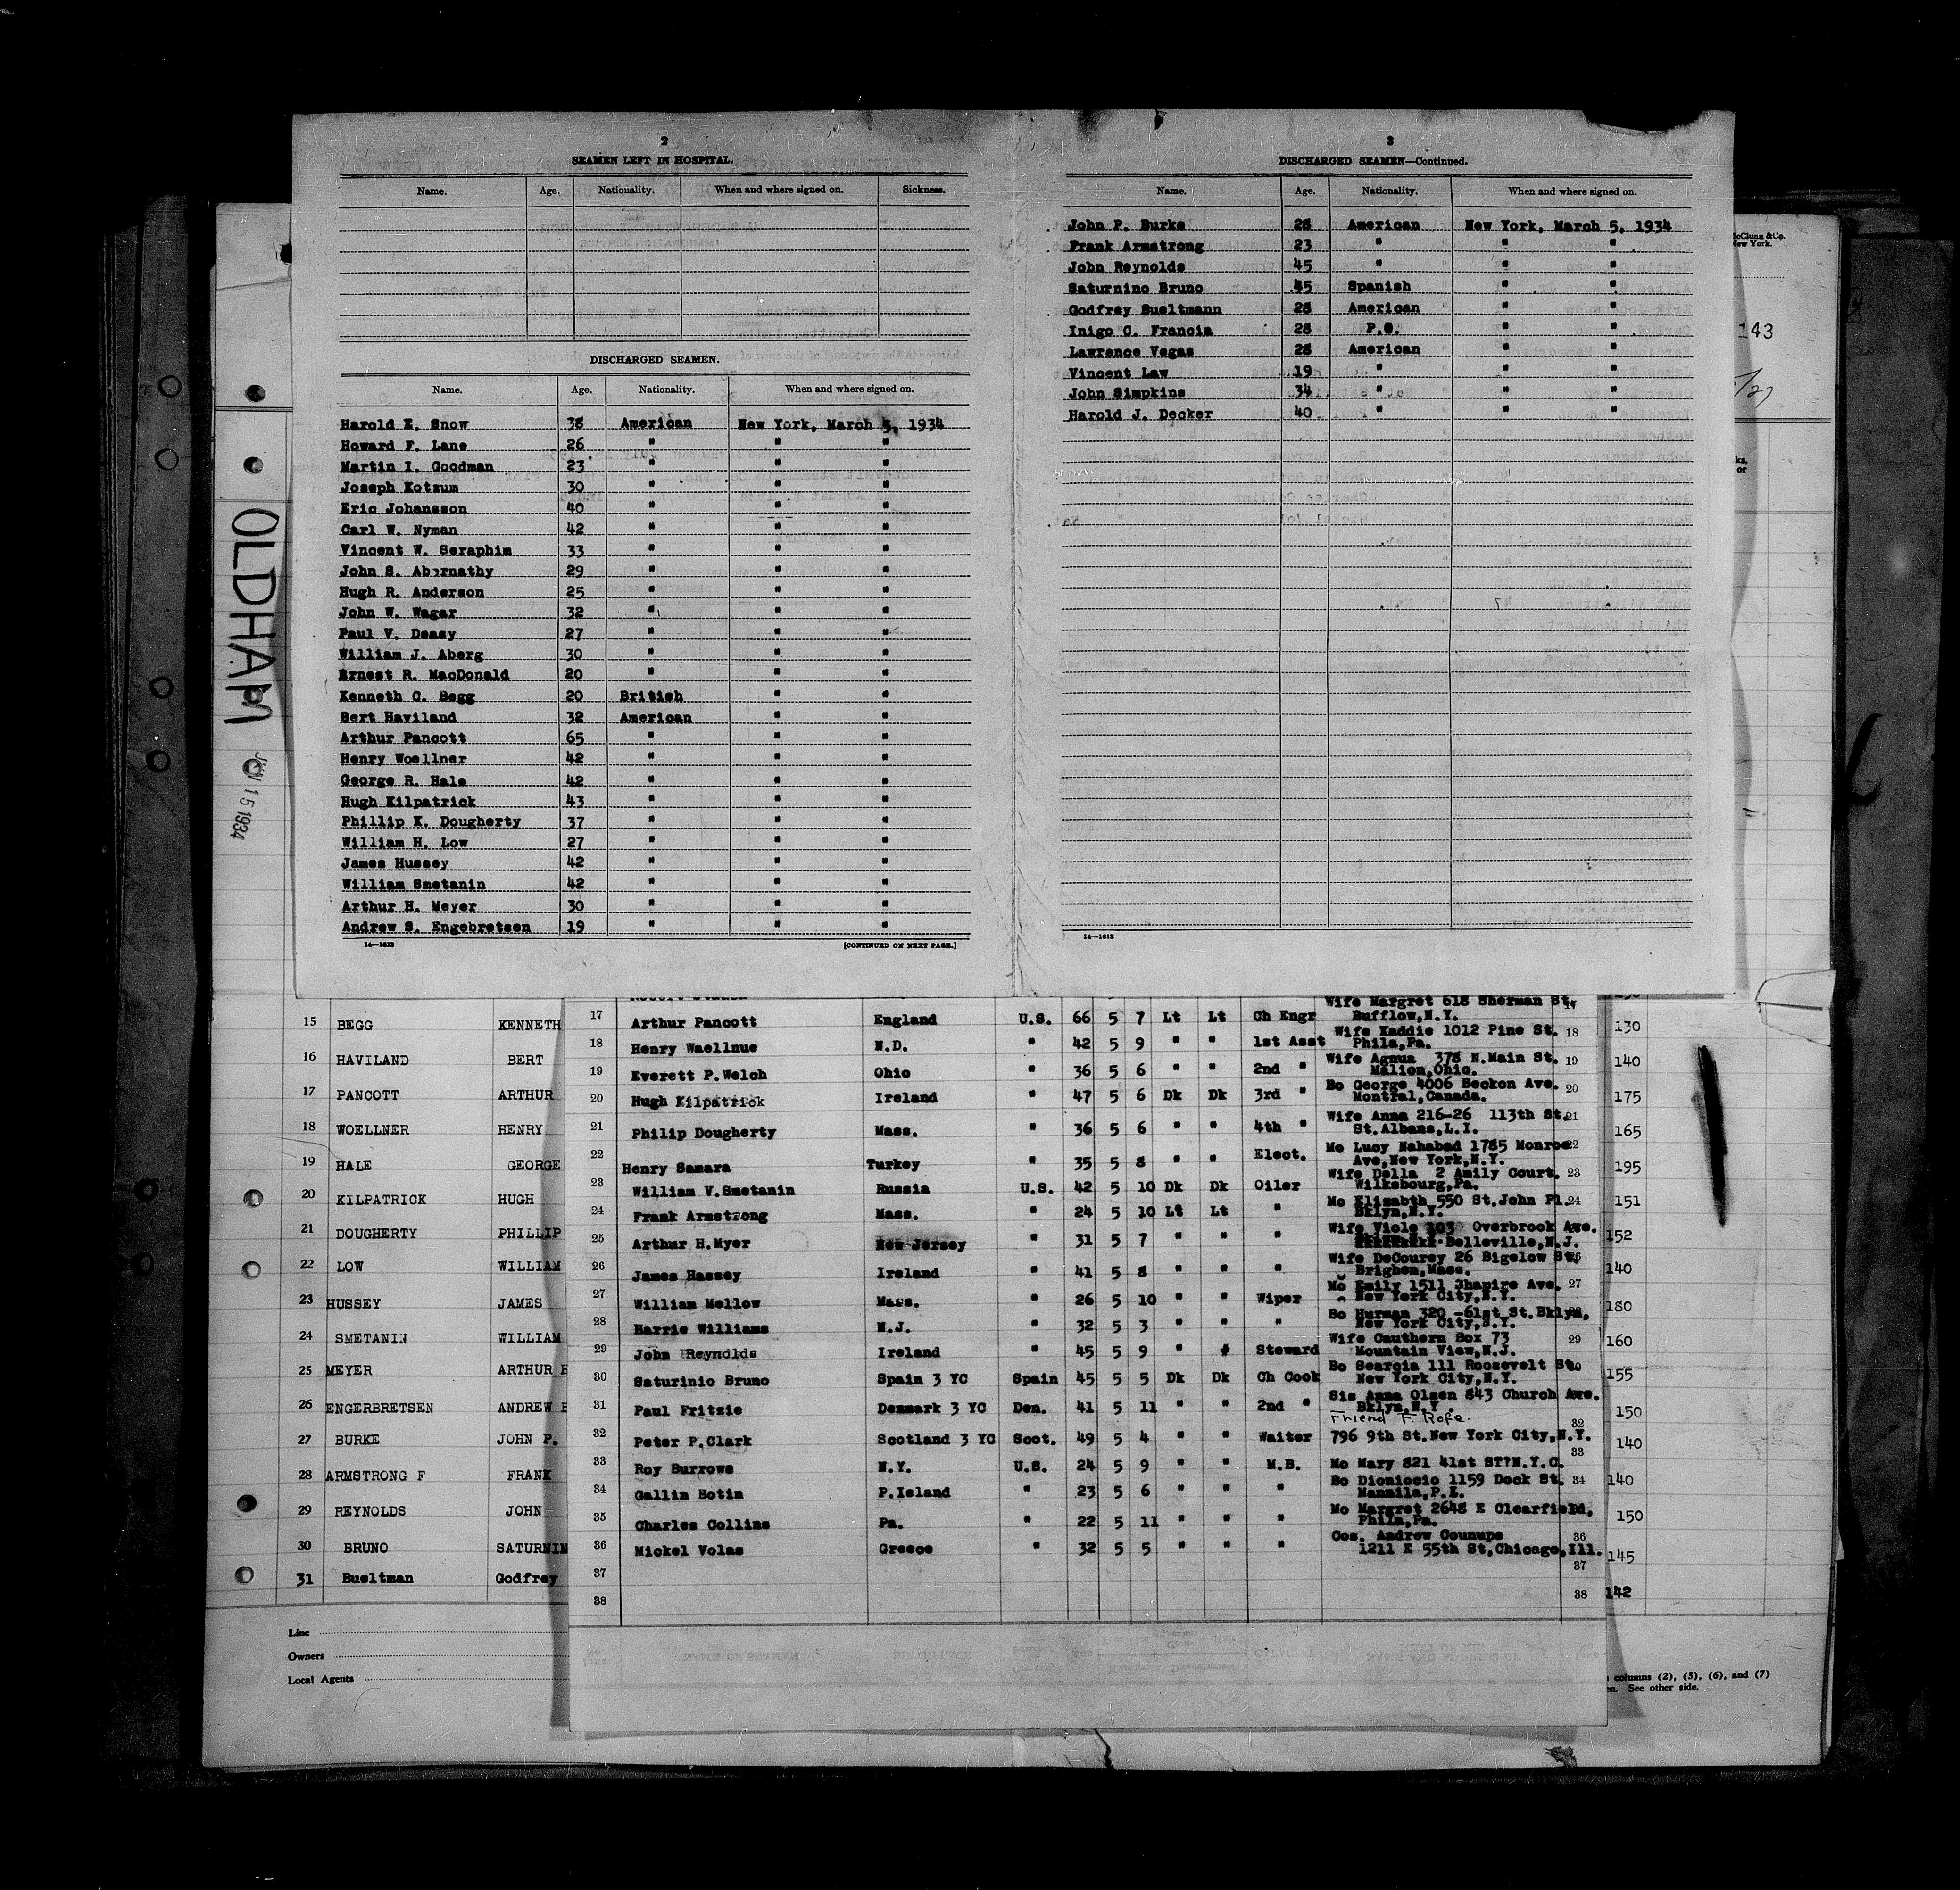 2
SEAMEN LEFT IN HOSPITAL.
Name. Age. Nationality. When and where signed on. Sickness.
DISCHARGED SEAMEN.
Name. Age. Nationality. When and where signed on.
Harold E. Snow 38 American New York, March 5, 1934
Howard F. Lane 26 " " "
Martin I. Goodman 23 " " "
Joseph Kotzum 30 " " "
Eric Johansson 40 " " "
Carl W. Nyman 42 " " "
Vincent W. Seraphim 33 " " "
John S. Abernathy 29 " " "
Hugh R. Anderson 25 " " "
John W. Wagar 32 " " "
Paul V. Deasy 27 " " "
William J. Aberg 30 " " "
Ernest R. MacDonald 20 " " "
Kenneth C. Begg 20 British " "
Bert Haviland 32 American " "
Arthur Pancott 65 " " "
Henry Woellner 42 " " "
George R. Hale 42 " " "
Hugh Kilpatrick 43 " " "
Phillip K. Dougherty 37 " " "
William H. Low 27 " " "
James Hussey 42 " " "
William Smetanin 42 " " "
Arthur H. Meyer 30 " " "
Andrew S. Engebretsen 19 " " "
14—1613 [CONTINUED ON NEXT PAGE.]
3
DISCHARGED SEAMEN—Continued.
Name. Age. Nationality. When and where signed on.
John P. Burke 28 American New York, March 5, 1934
Frank Armstrong 23 " " "
John Reynolds 45 " " "
Saturnino Bruno 45 Spanish " "
Godfrey Bueltmann 28 American " "
Inigo C. Francia 28 P.O. " "
Lawrence Vegas 28 American " "
Vincent Law 19 " " "
John Simpkins 34 " " "
Harold J. Decker 40 " " "
14—1613
McClunn & Co.
New York.
143
OLDHAM
JUN 15 1934
15 BEGG KENNETH
16 HAVILAND BERT
17 PANCOTT ARTHUR
18 WOELLNER HENRY
19 HALE GEORGE
20 KILPATRICK HUGH
21 DOUGHERTY PHILLIP
22 LOW WILLIAM
23 HUSSEY JAMES
24 SMETANIN WILLIAM
25 MEYER ARTHUR H
26 ENGERBRETSEN ANDREW
27 BURKE JOHN P.
28 ARMSTRONG F FRANK
29 REYNOLDS JOHN
30 BRUNO SATURNIN
31 Bueltman Godfrey
Line
Owners
Local Agents
Wife Margret 618 Sherman St.
17 Arthur Pancott England U.S. 66 5 7 Lt Lt Ch Engr Bufflow,N.Y.
18 Henry Waellnue N.D. " 42 5 9 " " 1st Asst Wife Kaddie 1012 Pine St. 18
Phila,Pa.
19 Everett P.Welch Ohio " 36 5 6 " " 2nd " Wife Agnua 378 N.Main St. 19
Malion,Ohio.
20 Hugh Kilpatrick Ireland " 47 5 6 Dk Dk 3rd " Bo George 4006 Beckon Ave. 20
Montral,Canada.
21 Philip Dougherty Mass. " 36 5 6 " " 4th " Wife Anna 216-26 113th St. 21
St.Albans,L.I.
22 Henry Samara Turkey " 35 5 8 " " Elect. Mo Lucy Nahabad 1785 Monroe 22
Ave,New York,N.Y.
23 William V.Smetanin Russia U.S. 42 5 10 Dk Dk Oiler Wife Della 2 Amily Court. 23
Wilksbourg,Pa.
24 Frank Armstrong Mass. " 24 5 10 Lt Lt " Mo Elizabth 550 St.John Pl. 24
Bklyn,N.Y.
25 Arthur H.Myer New Jersey " 31 5 7 " " " Wife Viole 303 Overbrook Ave.
Belleville,N.J.
26 James Hassey Ireland " 41 5 8 " " " Wife DeCoursy 26 Bigelow St. 26
Brighen,Mass.
27 William Mellow Mass. " 26 5 10 " " Wiper Mo Emily 1511 Shapire Ave. 27
New York City,N.Y.
28 Harrie Williams N.J. " 32 5 3 " " " Bo Hurman 320 -61st St.Bklyn,
New York City,N.Y.
29 John Reynolds Ireland " 45 5 9 " # Steward Wife Cauthern Box 73 29
Mountain View,N.J.
30 Saturinio Bruno Spain 3 YC Spain 45 5 5 Dk Dk Ch Cook Bo Seargia 111 Roosevelt St. 30
New York City,N.Y.
31 Paul Fritzie Denmark 3 YC Den. 41 5 11 " " 2nd " Sis Anna Olsen 843 Church Ave.
Bklyn,N.Y.
Friend F. Rofe. 32
32 Peter P.Clark Scotland 3 YC Scot. 49 5 4 " " Waiter 796 9th St.New York City,N.Y.
33
33 Roy Burrows N.Y. U.S. 24 5 9 " " M.B. Mo Mary 821 41st ST?N.Y.C.
34 Gallin Botin P.Island " 23 5 6 " " " Bo Dioniocio 1159 Dock St. 34
Mannila,P.I.
35 Charles Collins Pa. " 22 5 11 " " " Mo Margret 2648 E Clearfield,
Phila,Pa.
36 Mickel Volas Greece " 32 5 5 " " " Cos. Andrew Counups 36
1211 E 55th St,Chicago,Ill.
37 37
38 38
130
140
175
165
195
151
152
140
180
160
155
150
140
140
150
145
142
columns (2), (5), (6), and (7)
See other side.